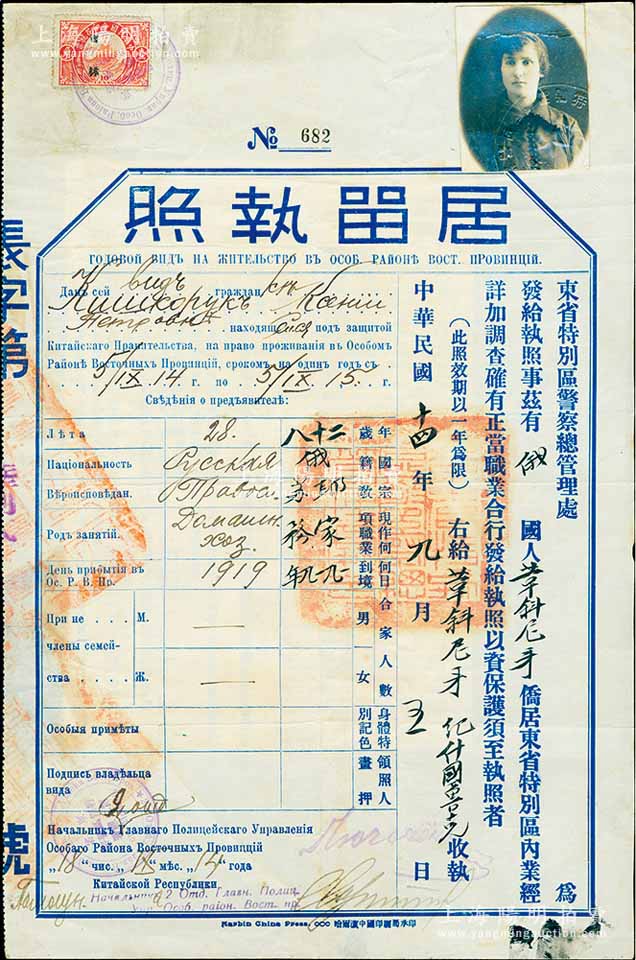 上海陽明拍賣
www.yangmingauction.com
№ 682
居留執照
ГОДОВОЙ ВИДЪ НА ЖИТЕЛЬСТВО ВЪ ОСОБ. РАЙОНѢ ВОСТ. ПРОВИНЦІЙ.
東省特別區警察總管理處 為
發給執照事茲有 俄 國人 僑居東省特別區內業經
詳加調查確有正當職業合行發給執照以資保護須至執照者
(此照效期以一年為限) 右給 收執
中華民國 十四 年 九 月 五 日
Данъ сей видъ граждан
Петровн
находящ под защитой
Китайскаго Правительства, на право проживанія въ Особомъ
Районѣ Восточныхъ Провинцій, срокомъ на одинъ годъ съ
5/IX. 14. г. по 5/IX. 15. г.
Свѣдѣнія о предъявителѣ:
Лѣта 28. 二十八 年歲
Національность Русская 俄 國籍
Вѣроисповѣдан. Правос. 宗教
Родъ занятій. Домашн. хоз. 家務 現作何項職業
День прибытія въ Ос. Р. В. Пр. 1919 一九一九年 何日到境
При не М. — 男
члены семей- 合家人數
ства Ж. — 女
Особыя примѣты 身體特別記色
Подпись владѣльца вида 領照人畫押
Начальникъ Главнаго Полицейскаго Управленія
Особаго Района Восточныхъ Провинцій
„18" чис. „IX" мѣс. „14" года
Китайской Республики
Начальникъ 2 Отд. Главн. Полиц.
Упр. Особ. район. Вост. пр.
Harbin China Press, ООО 哈爾濱中國印刷局承印
張字第
號
上海陽明拍賣
www.yangmingauction.com